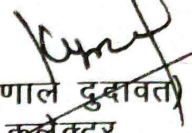 णाल दुदावत)
कलेक्टर